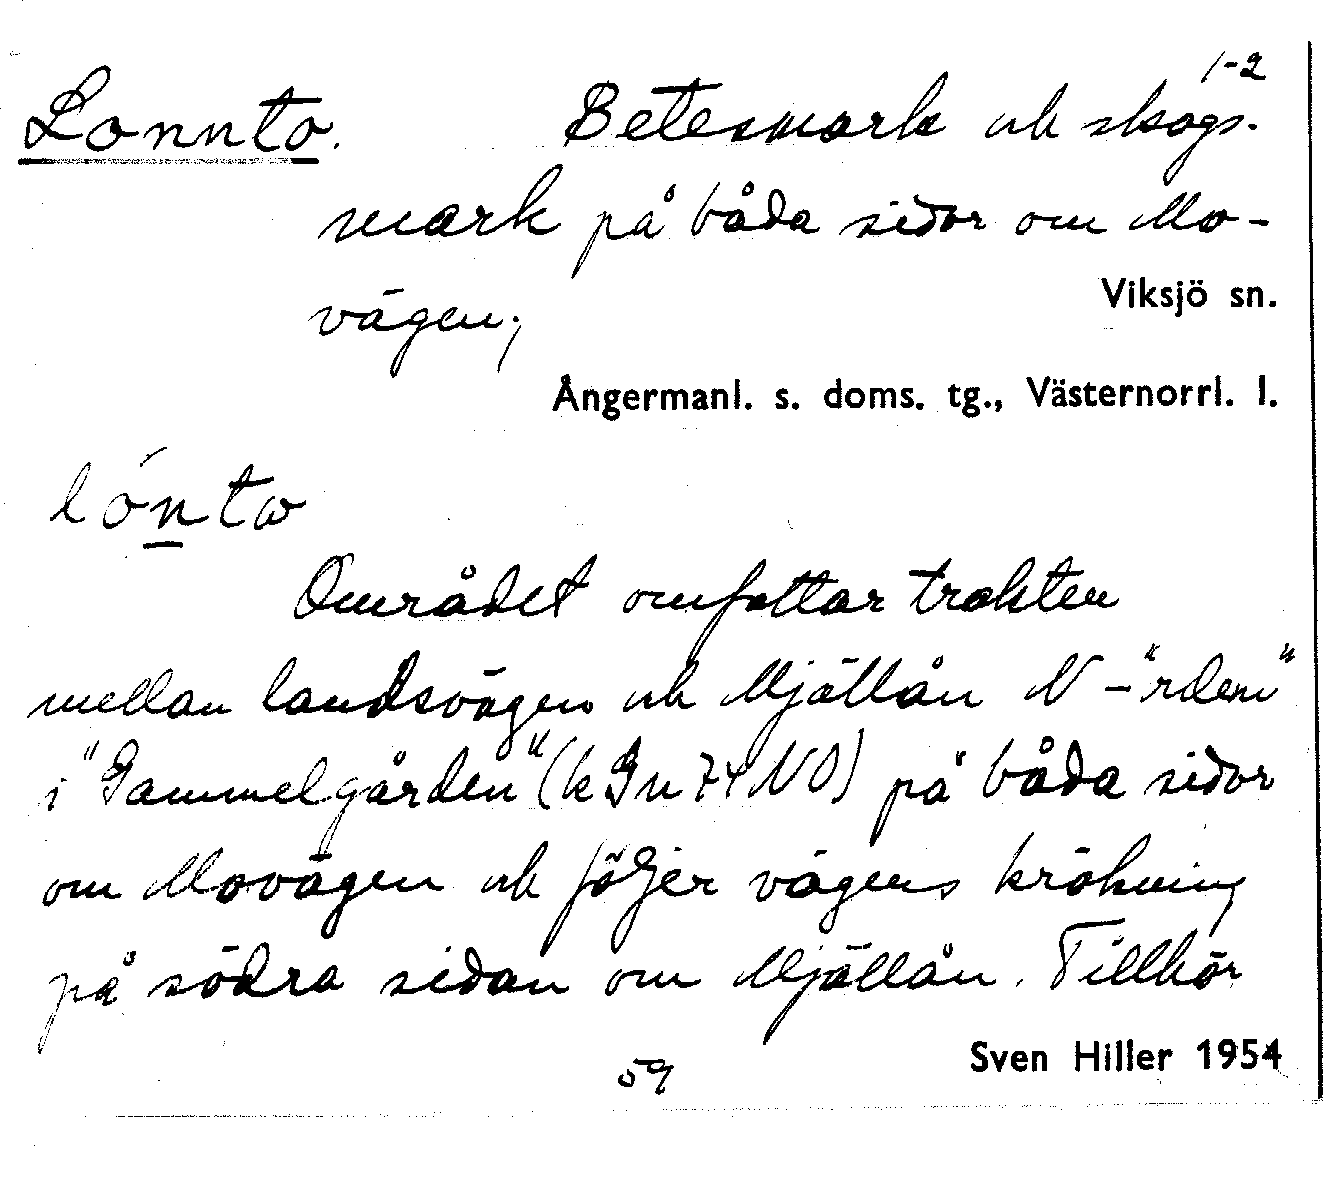 1-2
Lonnto. Betesmark och skogs-
mark på båda sidor om Mo-
vägen;
Viksjö sn.
Ångermanl. s. doms. tg., Västernorrl. l.
lónto
Området omfattar trakten
mellan landsvägen och Mjällån N - "rden"
i "Gammelgården" (k 74 NO) på båda sidor
om Movägen och följer vägens krökning
på södra sidan om Mjällån. Tillhör
Sven Hiller 1954
59